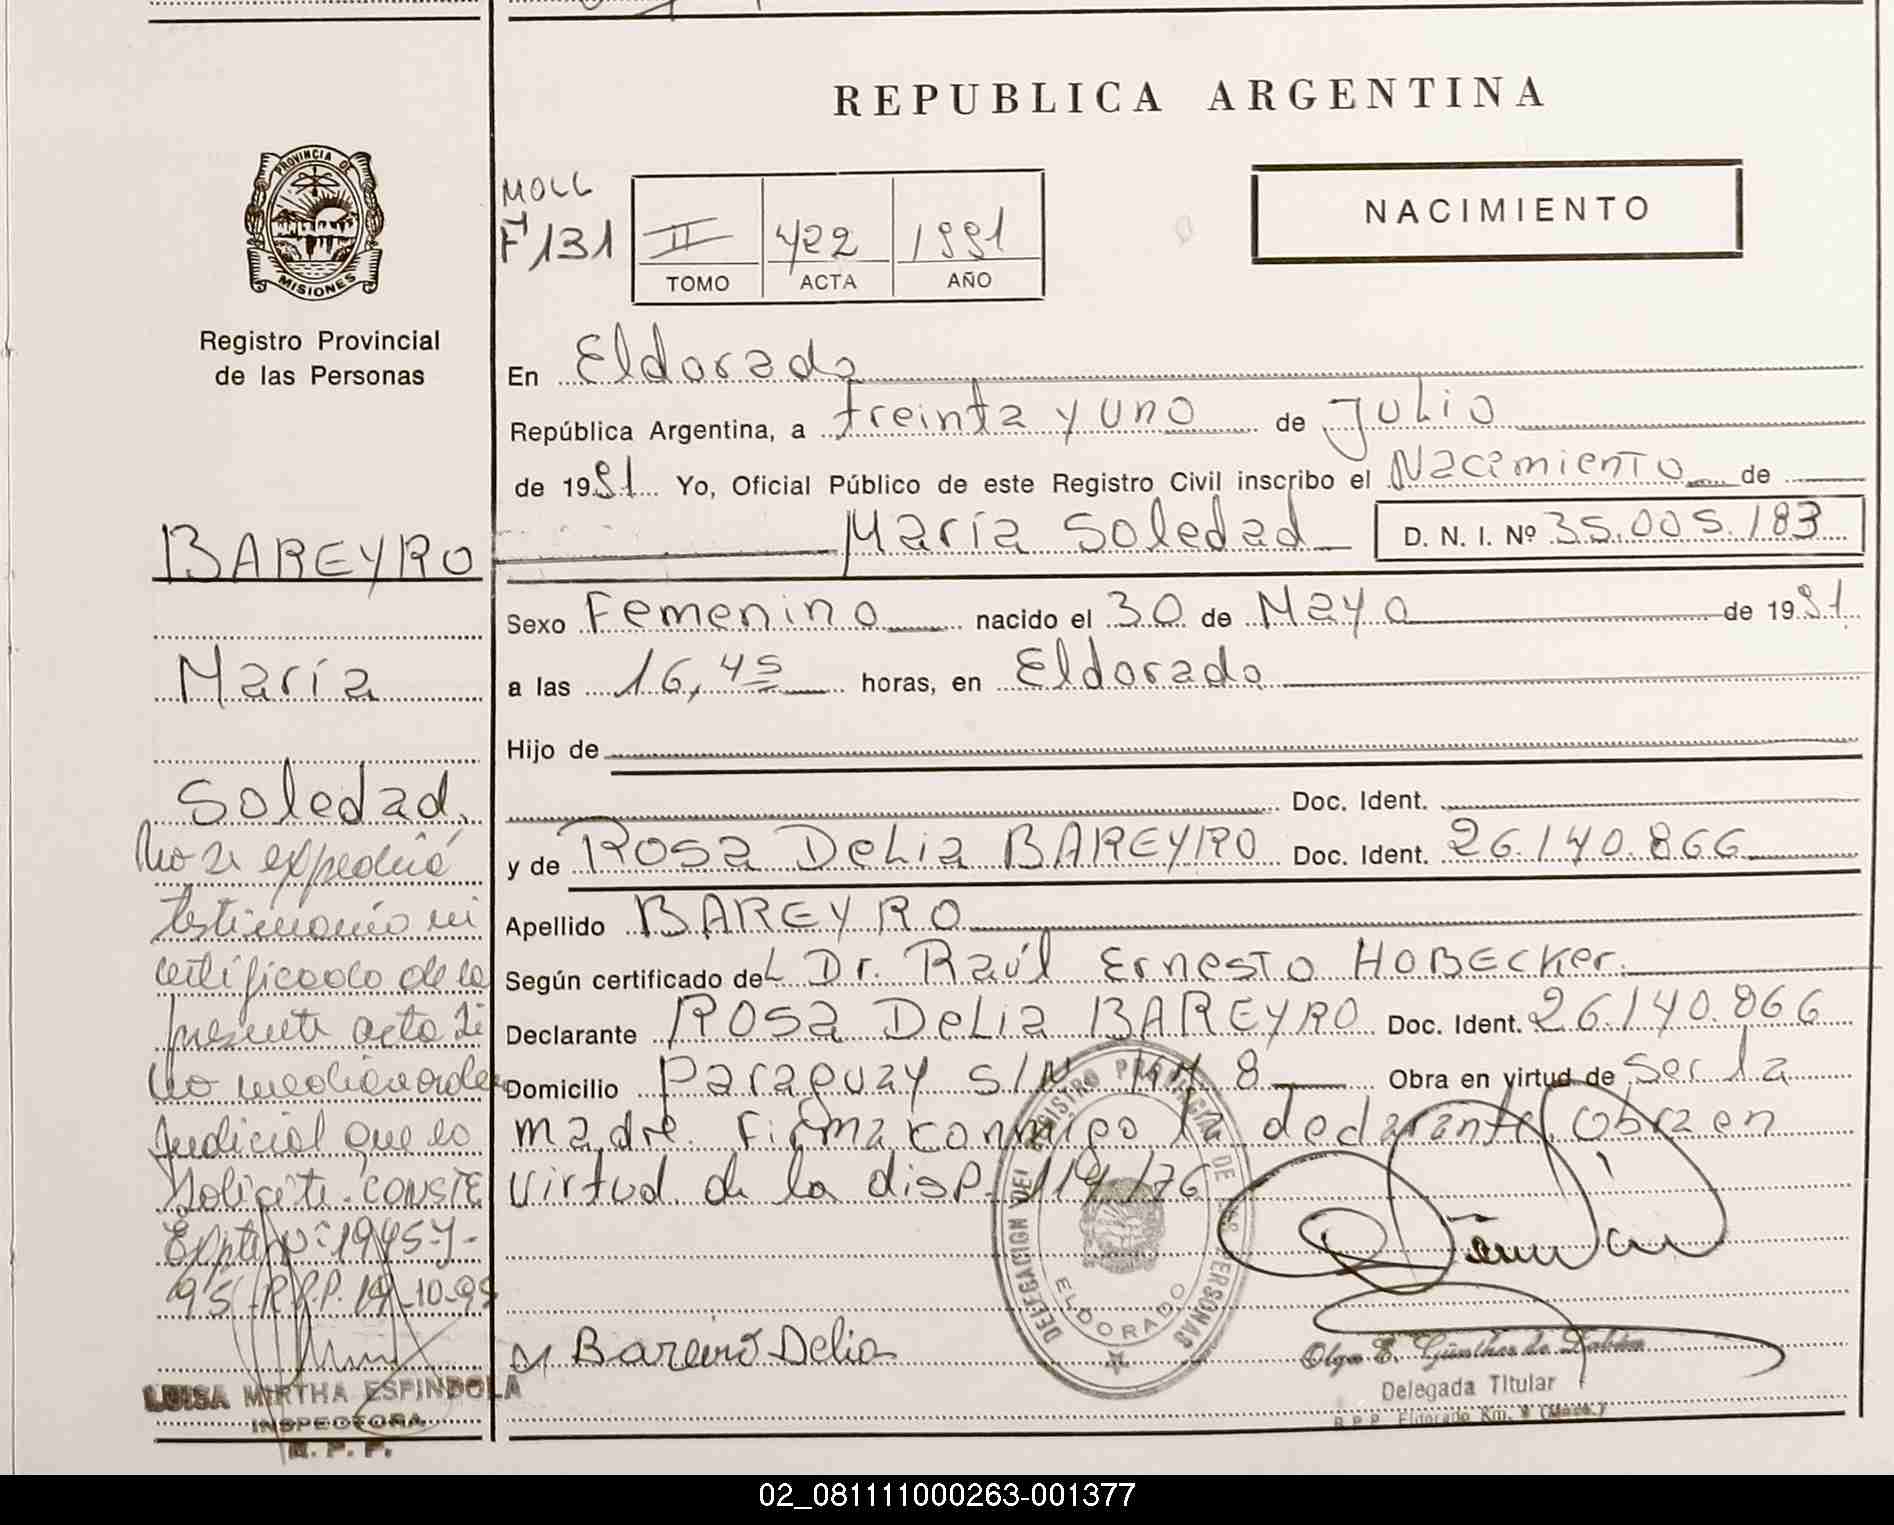 REPUBLICA ARGENTINA
PROVINCIA DE
MISIONES
Registro Provincial
de las Personas
MOLL
Fº 131
II 422 1991
TOMO ACTA AÑO
NACIMIENTO
En Eldorado
República Argentina, a treinta y uno de Julio
de 1991 Yo, Oficial Público de este Registro Civil inscribo el Nacimiento de
María Soledad D. N. I. Nº 35.005.183
Sexo Femenino nacido el 30 de Mayo de 1991
a las 16,45 horas, en Eldorado
Hijo de
Doc. Ident.
y de Rosa Delia BAREYRO Doc. Ident. 26.140.866
Apellido BAREYRO
Según certificado del Dr. Raúl Ernesto HOBECKer.
Declarante ROSA DeLia BAREYRO Doc. Ident. 26.140.866
Domicilio Paraguay S/N KM 8 Obra en virtud de ser la
madre. Firma conmigo la declarante, Obra en
Virtud de la disp. 114/76
Bareiro Delia
DELEGACION DEL REGISTRO PROVINCIAL DE LAS PERSONAS
ELDORADO
Olga E. Günther de Fabián
Delegada Titular
R.P.P. Eldorado Km. 8 (Mnes.)
BAREYRO
María
Soledad.
No se expedirá
testimonio ni
certificado de la
presente acta si
no media orden
Judicial que lo
Solicite. CONSTE
Expte Nº 19457-
95 R.P.P. 19-10-95
LUISA MIRTHA ESPINDOLA
INSPECTORA
R. P. P.
02_081111000263-001377